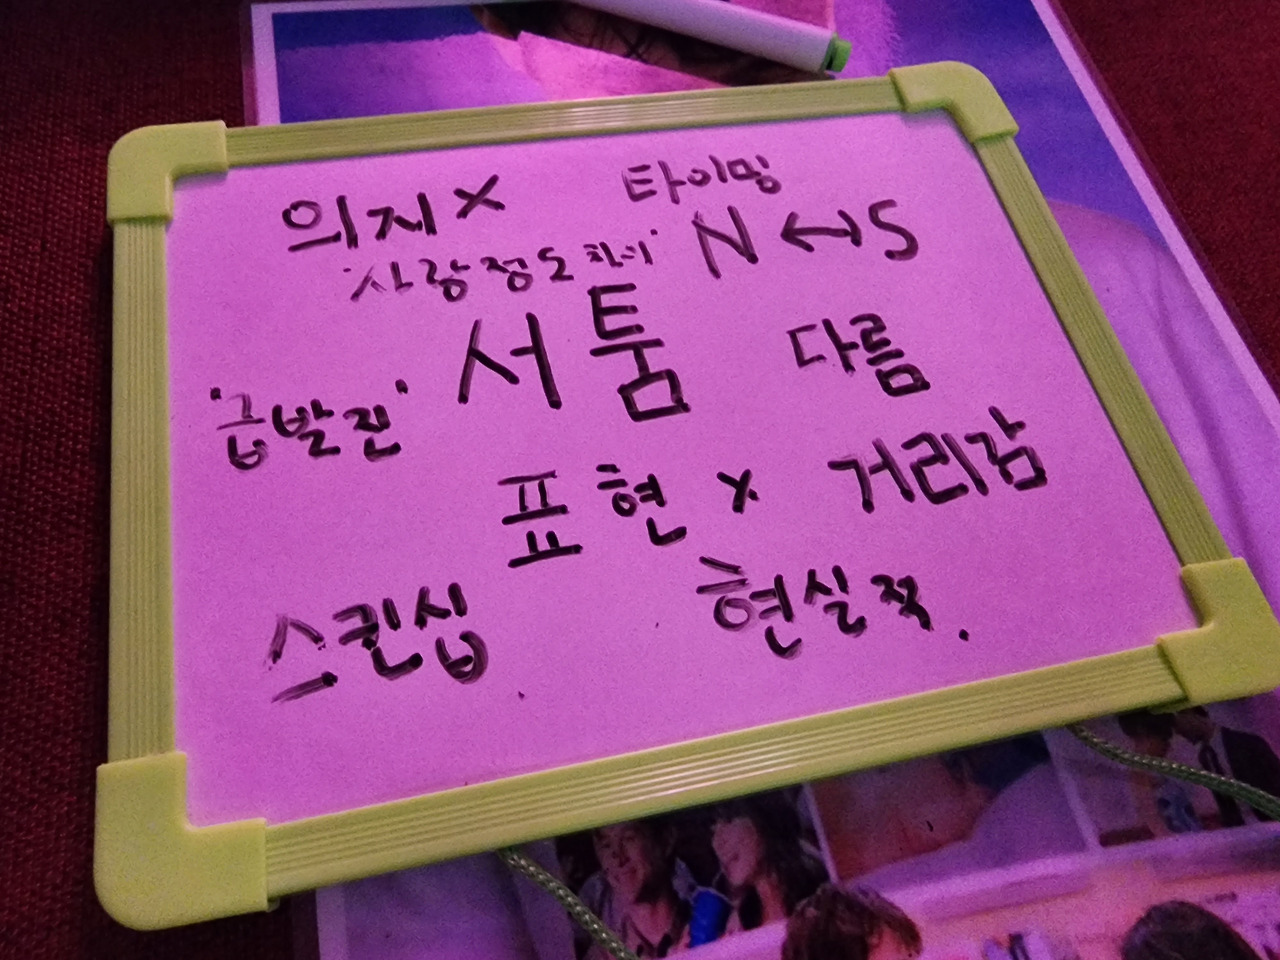 의지 X
타이밍
'사랑정도 차이'
N ↔ S
서툼
다름
'급발진'
표현 X
거리감
스킨십
현실적.